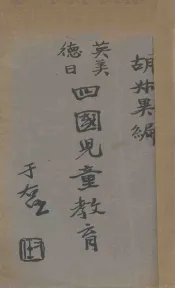 胡叔異編
英美
德日
四國兒童教育
于右任